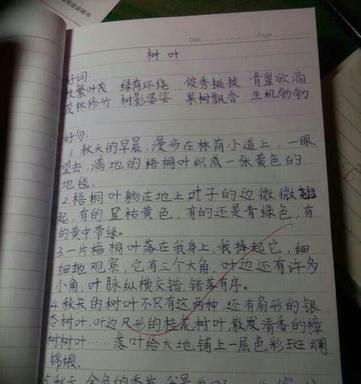 Date Page
树叶
好词:
枝繁叶茂 绿荫环绕 俊秀挺拔 青翠欲滴
茂林修竹 树影婆娑 果树飘香 生机勃勃
好句:
1.秋天的早晨,漫步在林荫小道上,一眼
望去,满地的梧桐叶织成一张黄色的
地毯。
2.梧桐叶躺在地上叶子的边微微翘
起,有的呈枯黄色,有的还是青绿色,有
的黄中带绿。
3.一片梧桐叶落在我身上,我捧起它,细
细地观察,它有三个大角,叶边还有许多
小角,叶脉纵横交错,错落有序。
4.秋天的树叶不只有这两种,还有扇形的银
杏树叶,叶边尺形的桂花树叶,散发清香的樟
树树叶……落叶给大地铺上一层色彩斑斓
锦缎。